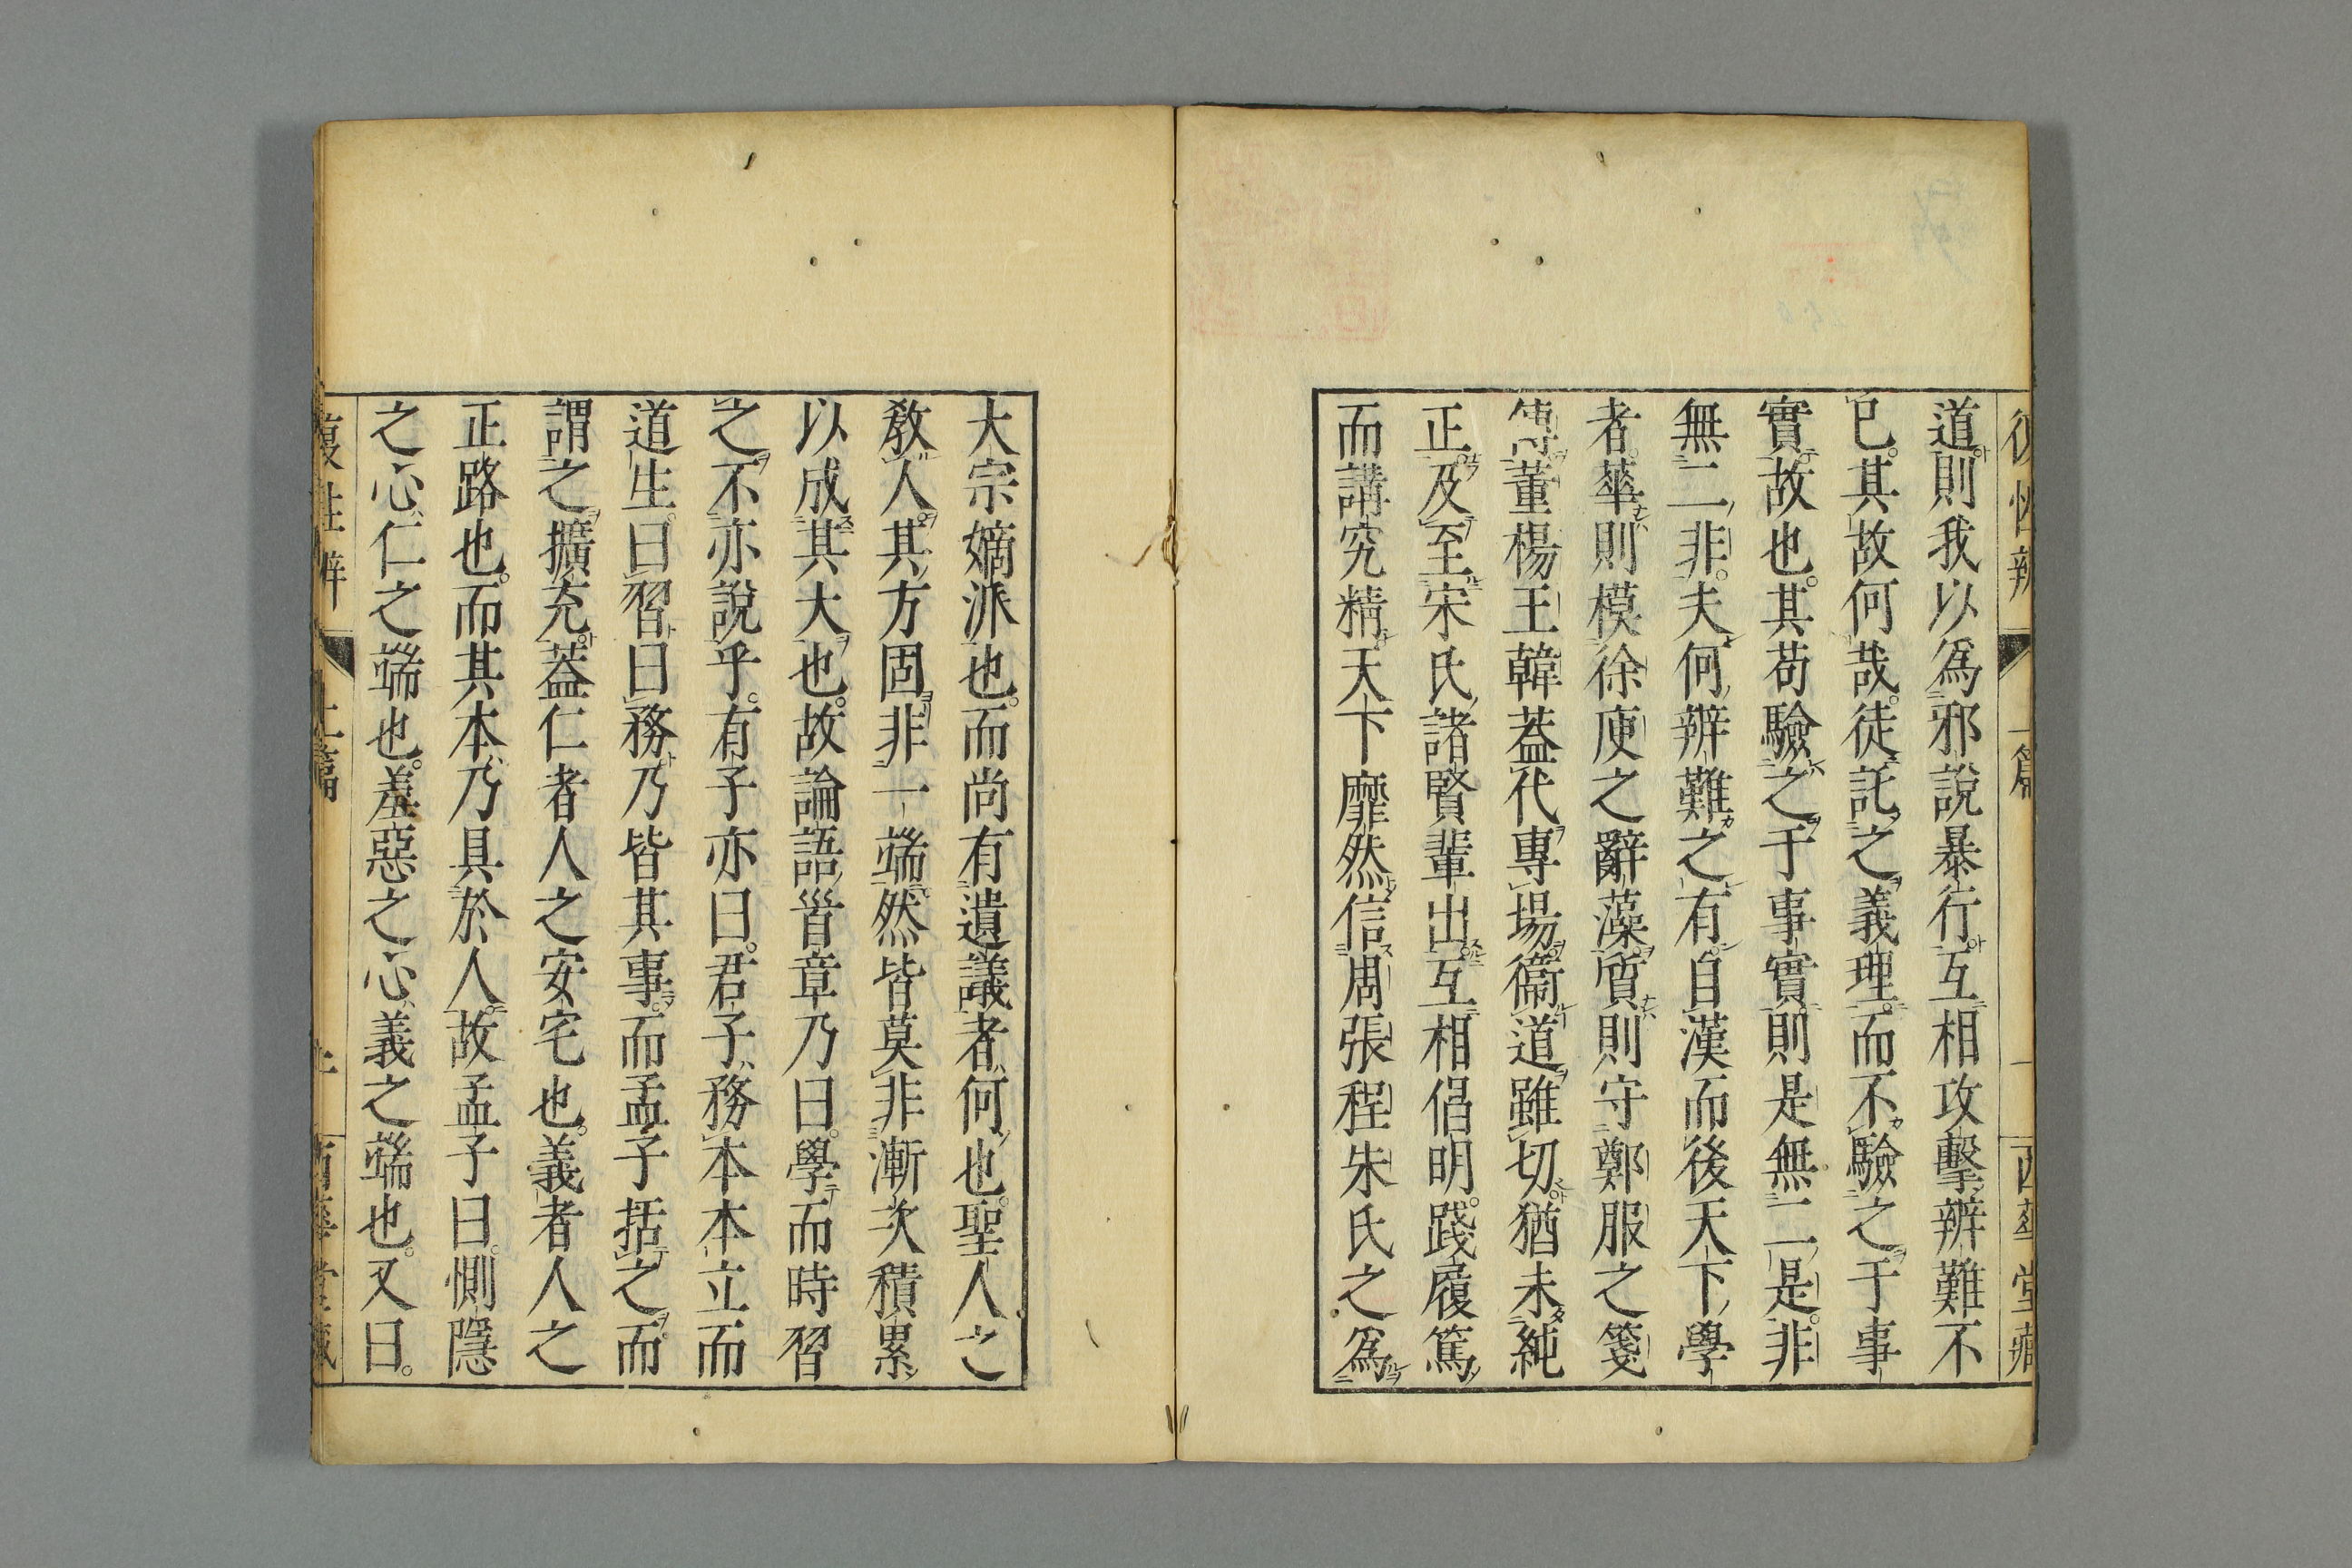 道則我以爲邪說暴行互相攻擊辨難不
已其故何哉徒託之義理而不驗之于事
實故也其苟驗之于事實則是無二是非
無二非夫何辨難之有自漢而後天下學
者華則模徐庾之辭藻質則守鄭服之箋
傳董楊王韓蓋代專場衞道雖切猶未純
正及至宋氏諸賢輩出互相倡明踐履篤
而講究精天下靡然信周張程朱氏之爲
大宗嫡派也而尚有遺議者何也聖人之
敎人其方固非一端然皆莫非漸次積累
以成其大也故論語首章乃曰學而時習
之不亦說乎有子亦曰君子務本本立而
道生曰習曰務乃皆其事而孟子括之而
謂之擴充蓋仁者人之安宅也義者人之
正路也而其本乃具於人故孟子曰惻隱
之心仁之端也羞惡之心義之端也又曰
復性辨 上篇 西華堂藏